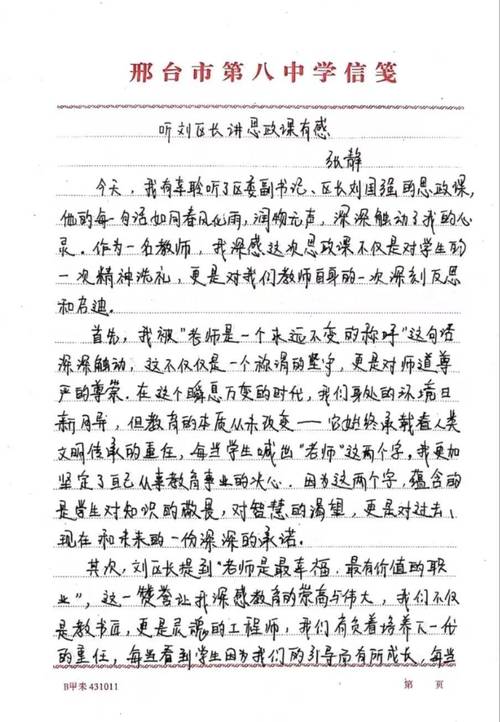 邢台市第八中学信笺
听刘区长讲思政课有感
张静
今天，我有幸聆听了区委副书记、区长刘国强的思政课，
他的每一句话如同春风化雨，润物无声，深深触动了我的心
灵。作为一名教师，我深感这次思政课不仅是对学生的
一次精神洗礼，更是对我们教师自身的一次深刻反思
和启迪．
首先，我被“老师是一个永远不变的称呼”这句话
深深触动，这不仅仅是一个称谓的坚守，更是对师道尊
严的尊崇．在这个瞬息万变的时代，我们身处的环境日
新月异，但教育的本质从未改变——它始终承载着人类
文明传承的重任，每当学生喊出“老师”这两个字，我更加
坚定了自己从事教育事业的决心．因为这两个字，蕴含的
是学生对知识的敬畏，对智慧的渴望，更是对过去、
现在和未来的一份深深的承诺．
其次，刘区长提到“老师是最幸福、最有价值的职
业”，这一赞誉让我深感教育的崇高与伟大，我们不仅
是教书匠，更是灵魂的工程师，我们肩负着培养下一代
的重任，每当看到学生因为我们的引导而有所成长，每当
B甲来431011
第 页